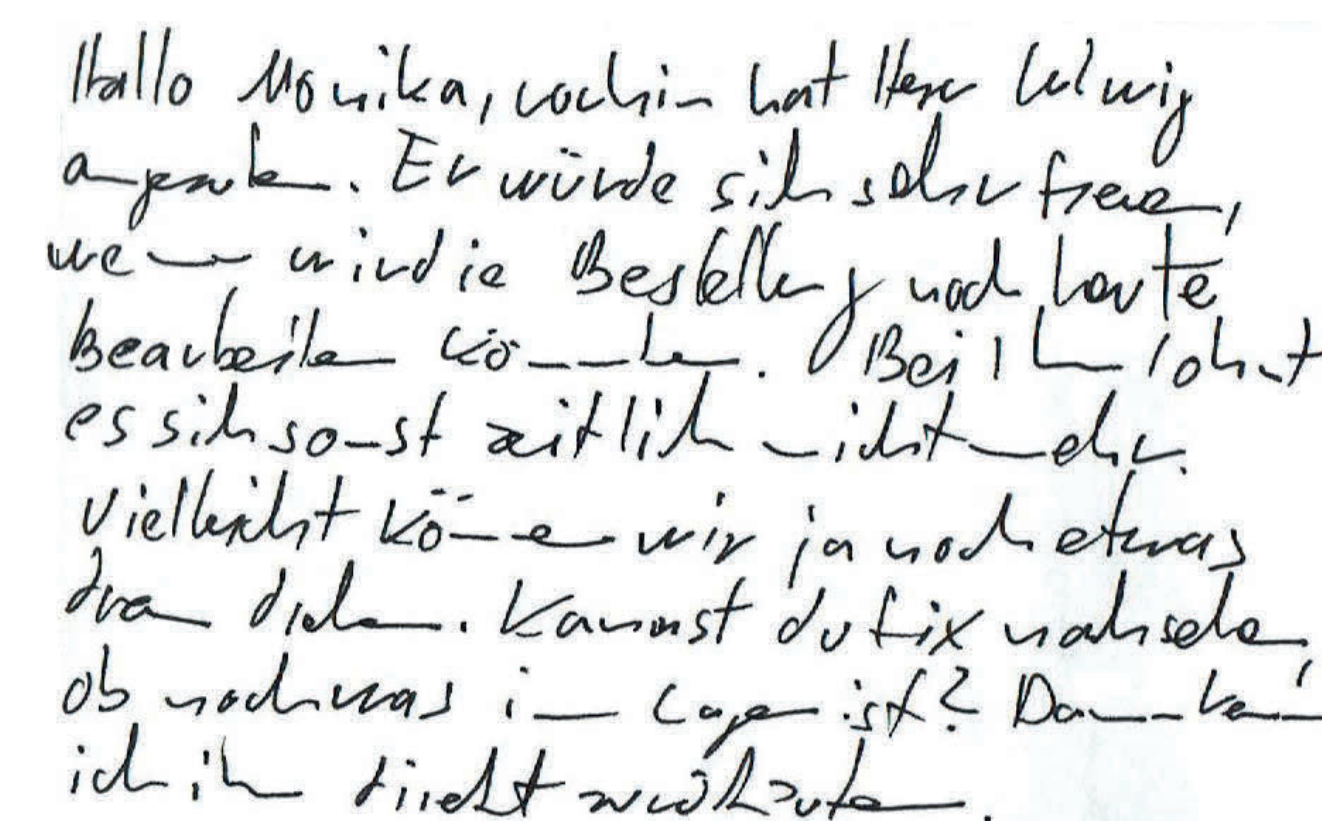 Hallo Monika, vorhin hat Herr
angerufen. Er würde sich sehr freuen,
wenn wir die Bestellung noch heute
bearbeiten könnten. Bei ihm lohnt
es sich sonst zeitlich nicht mehr.
Vielleicht können wir ja noch etwas
dran drehen. Kannst du fix nachsehen
ob noch was im Lager ist? Dann kann
ich ihn direkt zurückrufen.